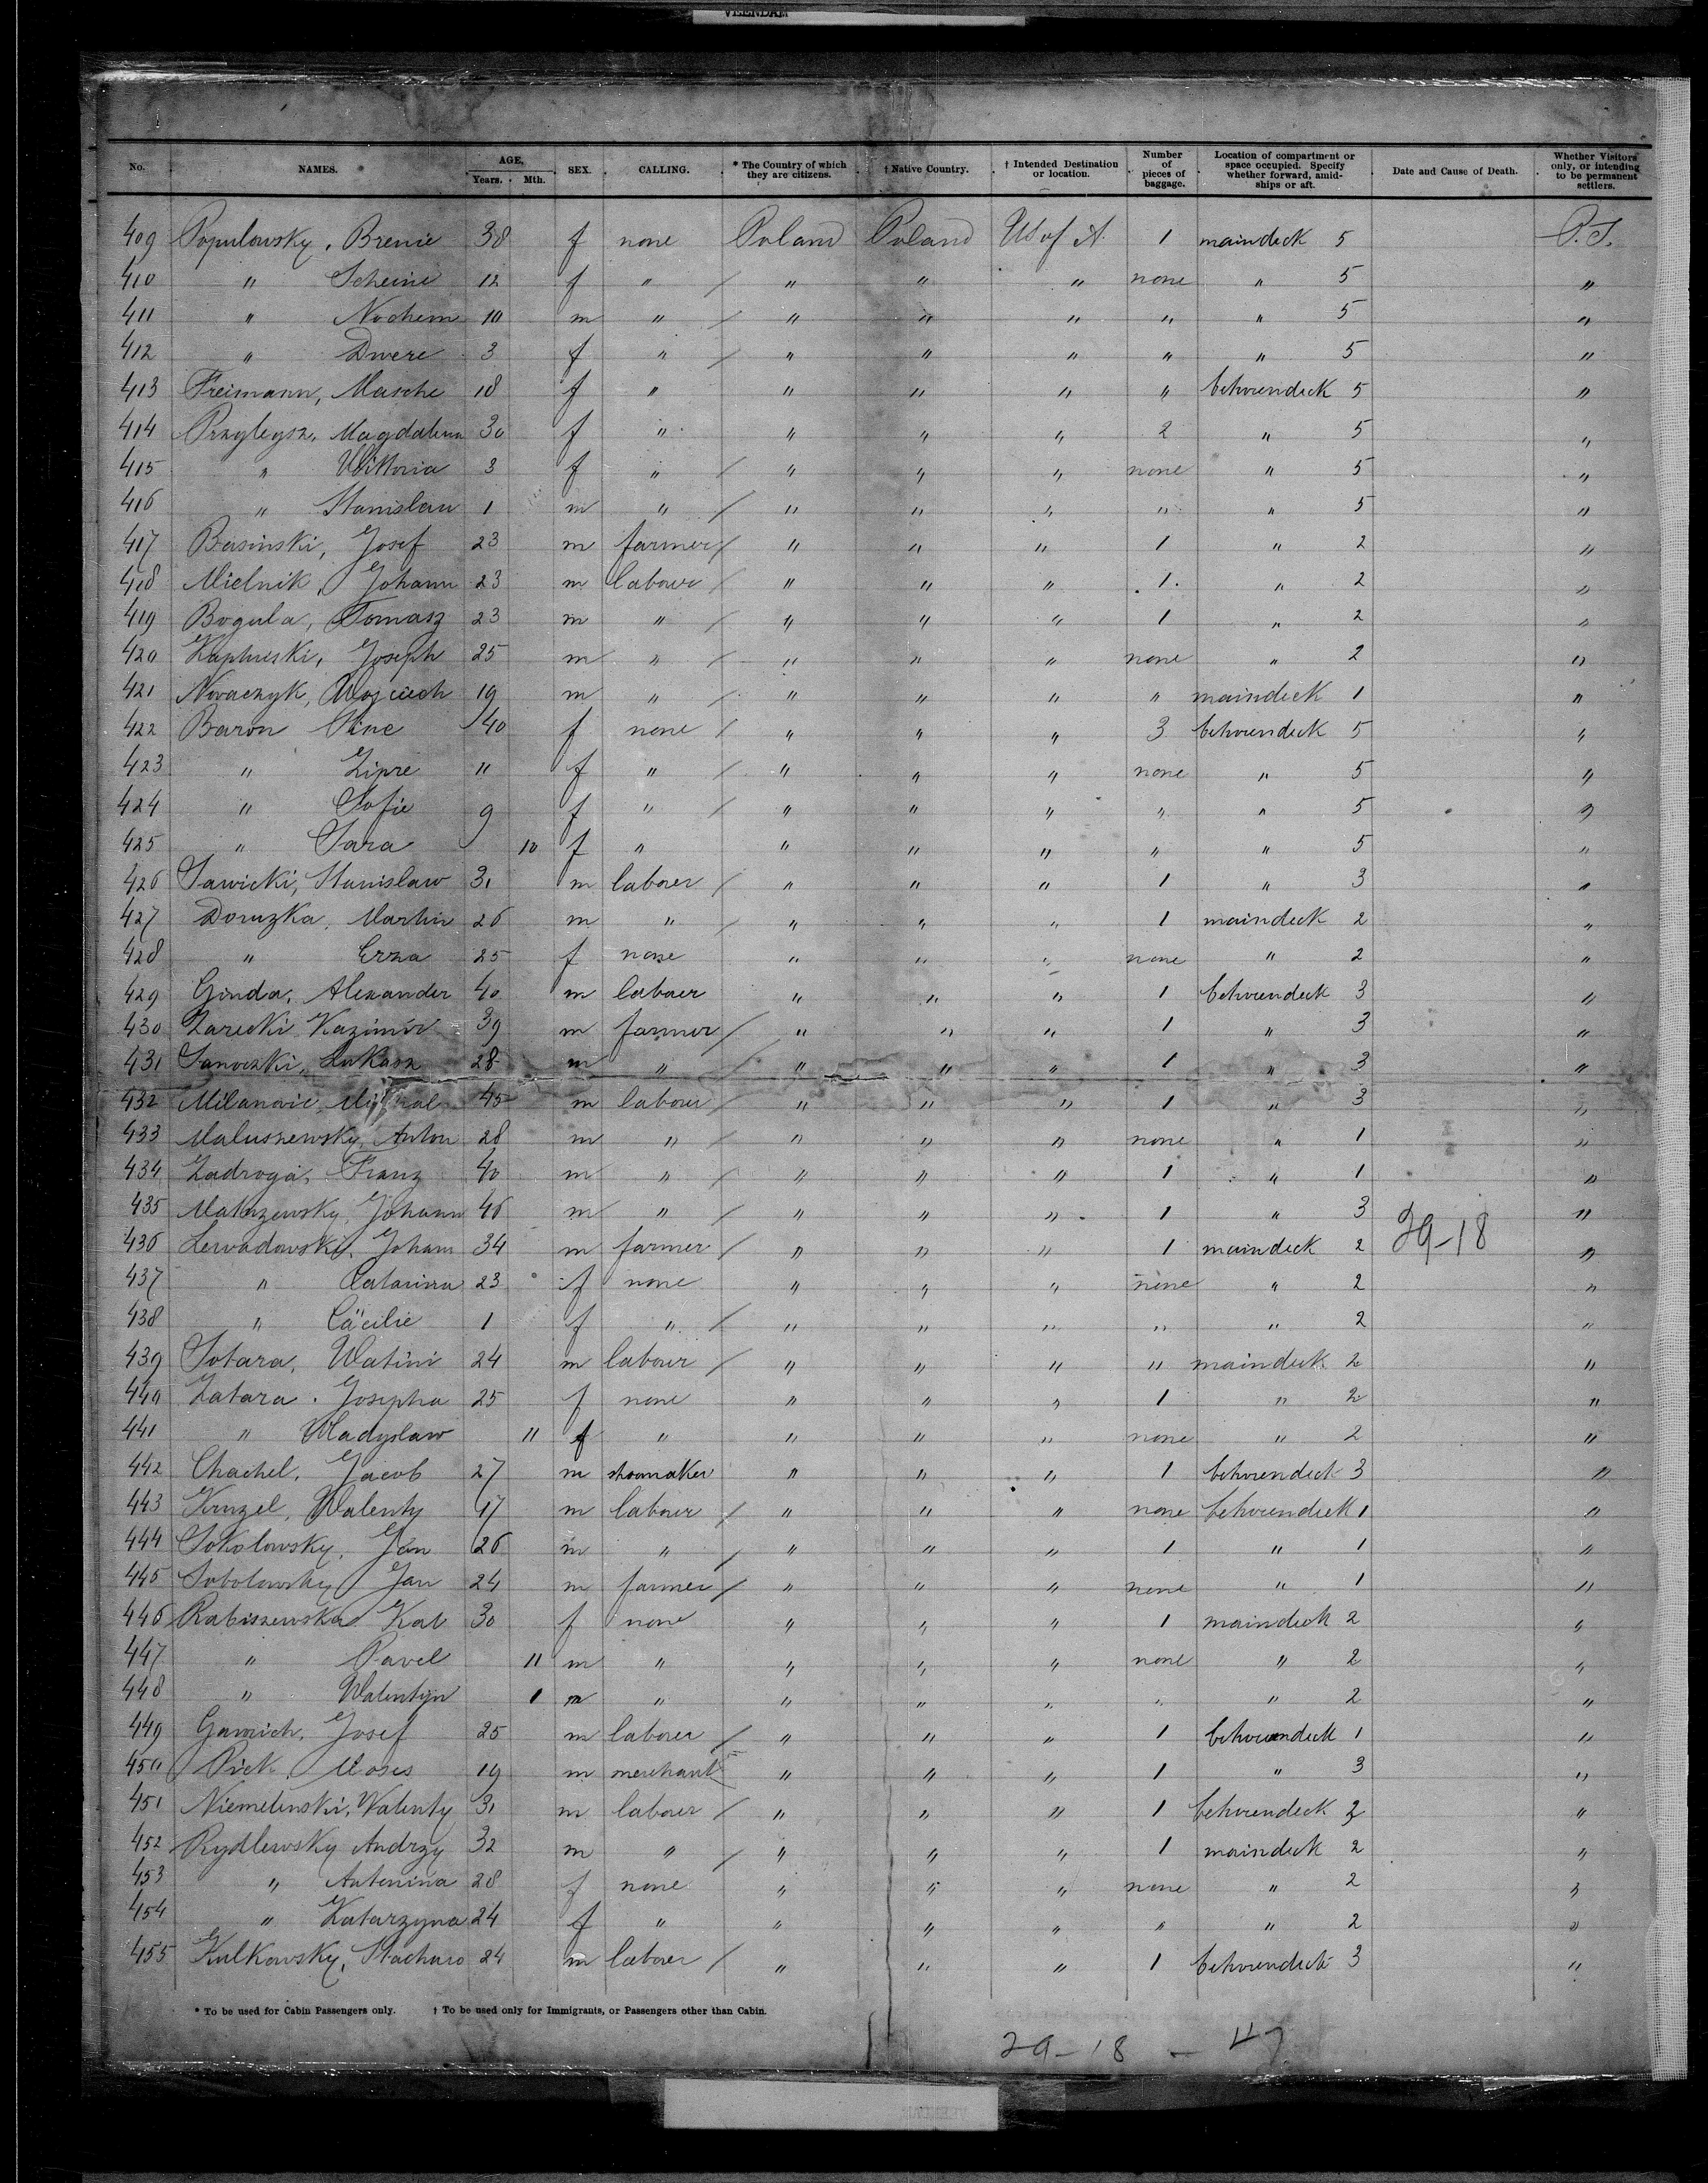 VEENDAM
No. NAMES. AGE, Years. Mth. SEX. CALLING. * The Country of which they are citizens. † Native Country. † Intended Destination or location. Number of pieces of baggage. Location of compartment or space occupied. Specify whether forward, amidships or aft. Date and Cause of Death. Whether Visitors only, or intending to be permanent settlers.
409 Populowsky, Brenie 38 f none Poland Poland US of A. 1 maindeck 5 P.S.
410 " Scheine 12 f " / " " " none " 5 "
411 " Nochem 10 m " / " " " " " 5 "
412 " Dwere 3 f " / " " " " " 5 "
413 Freimann, Masche 18 f " " " " " betweendeck 5 "
414 Przylegsz, Magdalena 30 f " " " " 2 " 5 "
415 " Wiktoria 3 f " / " " " none " 5 "
416 " Stanislaw 1 m " / " " " " " 5 "
417 Basinski, Josef 23 m farmer / " " " 1 " 2 "
418 Mielnik, Johann 23 m labour / " " " 1 " 2 "
419 Bogula, Tomasz 23 m " / " " " 1 " 2 "
420 Joseph 25 m " / " " " none " 2 "
421 Novaczyk, Wojciech 19 m " / " " " " maindeck 1 "
422 Baron 40 f none / " " " 3 betweendeck 5 "
423 " Zipre 11 f " / " " " none " 5 "
424 " Sofie 9 f " / " " " " " 5 "
425 " Sara 10 f " " " " " " 5 "
426 Sawicki, Stanislaw 31 m laborer / " " " 1 " 3 "
427 Doruzka, Martin 26 m " / " " " 1 maindeck 2 "
428 " Erza 25 f none " " " none " 2 "
429 Ginda, Alexander 40 m laborer " " " 1 betweendeck 3 "
430 Zarecki Kazimir 39 m farmer / " " " 1 " 3 "
431 Sanoczki, Lukasz 28 m " / " " " 1 " 3 "
432 Milanovic, 45 m labour / " " " 1 " 3 "
433 Maluszewsky, Anton 28 m " / " " " none " 1 "
434 Zadroga, Franz 40 m " / " " " 1 " 1 "
435 Matuzewsky, Johann 46 m " / " " " 1 " 3 "
436 Lewadowski, Joham 34 m farmer / " " " 1 maindeck 2 29-18 "
437 " Catarina 23 f none " " " none " 2 "
438 " Cäcilie 1 f " / " " " " " 2 "
439 Sotara, Watini 24 m labour / " " " " maindeck 2 "
440 Zatara. Josepha 25 f none " " " 1 " 2 "
441 " Wladyslaw 11 f " " " " none " 2 "
442 Chachel, Jacob 27 m shoemaker " " " 1 betweendeck 3 "
443 Kruzel, Walenty 17 m laborer / " " " none betweendeck 1 "
444 Sokolowsky, Jan 26 m " / " " " 1 " 1 "
445 Sobolowsky Jan 24 m farmer / " " " none " 1 "
446 Rabiszewska Kat 30 f none " " " 1 maindeck 2 "
447 " Pavel 11 m " " " " none " 2 "
448 " Walentyn 1 m " " " " " " 2 "
449 Gawrich, Josef 25 m laborer / " " " 1 betweendeck 1 "
450 Pick, Moses 19 m merchant " " " 1 " 3 "
451 Niemelinski, Walenty 31 m laborer / " " " 1 betweendeck 2 "
452 Rydlewsky Andrzy 32 m " / " " " 1 maindeck 2 "
453 " Antonina 28 f none " " " none " 2 "
454 " Katarzyna 24 f " " " " " " 2 "
455 Kulkowsky, 24 m laborer / " " " 1 betweendeck 3 "
* To be used for Cabin Passengers only. † To be used only for Immigrants, or Passengers other than Cabin.
29-18 - 47